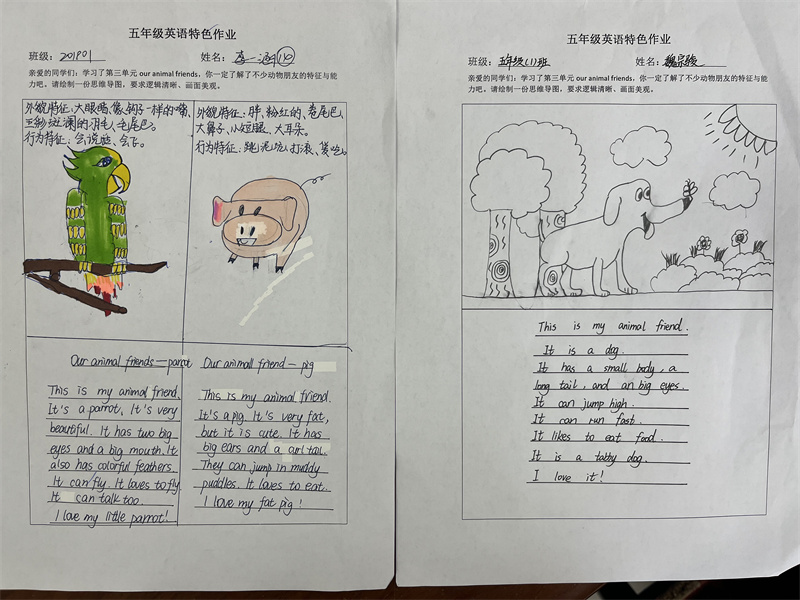 五年级英语特色作业
班级：201901 姓名：李一涵(10)
亲爱的同学们：学习了第三单元 our animal friends，你一定了解了不少动物朋友的特征与能
力吧。请绘制一份思维导图，要求逻辑清晰、画面美观。
外貌特征：大眼睛、像钩子一样的嘴、
五彩斑斓的羽毛、毛尾巴。
行为特征：会说话、会飞。
外貌特征：胖、粉红的、卷尾巴、
大鼻子、小短腿、大耳朵。
行为特征：跳泥坑、打滚、贪吃。
Our animal friends—parrot
This is my animal friend.
It's a parrot, It's very
beautiful. It has two big
eyes and a big mouth. It
also has colorful feathers.
It can fly. It loves to fly
It can talk too.
I love my little parrot!
Our animall friend — pig
This is my animal friend.
It's a pig. It's very fat,
but it is cute. It has
big ears and a curl tail.
They can jump in muddy
puddles. It loves to eat.
I love my fat pig!
五年级英语特色作业
班级：五年级(1)班 姓名：魏宗骏
亲爱的同学们：学习了第三单元 our animal friends，你一定了解了不少动物朋友的特征与能
力吧。请绘制一份思维导图，要求逻辑清晰、画面美观。
This is my animal friend.
It is a dog.
It has a small body, a
long tail, and an big eyes.
It can jump high.
It can run fast.
It likes to eat food.
It is a tatty dog.
I love it!